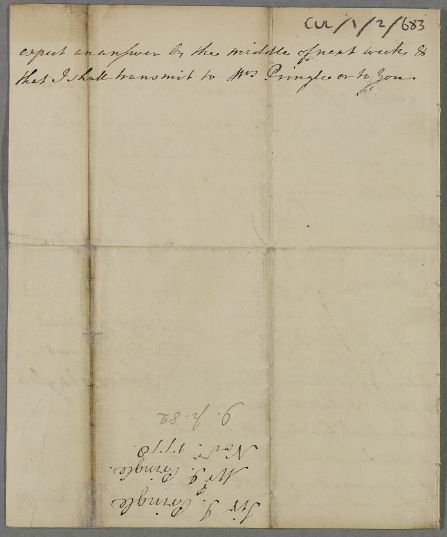 CUL/1/2/683
expect an answer by the middle of next week &
that I shall transmit to Mrs Pringle or to You.
Sir J. Pringle
Mr J. Pringle.
Novr. 1778.
J. p. 82